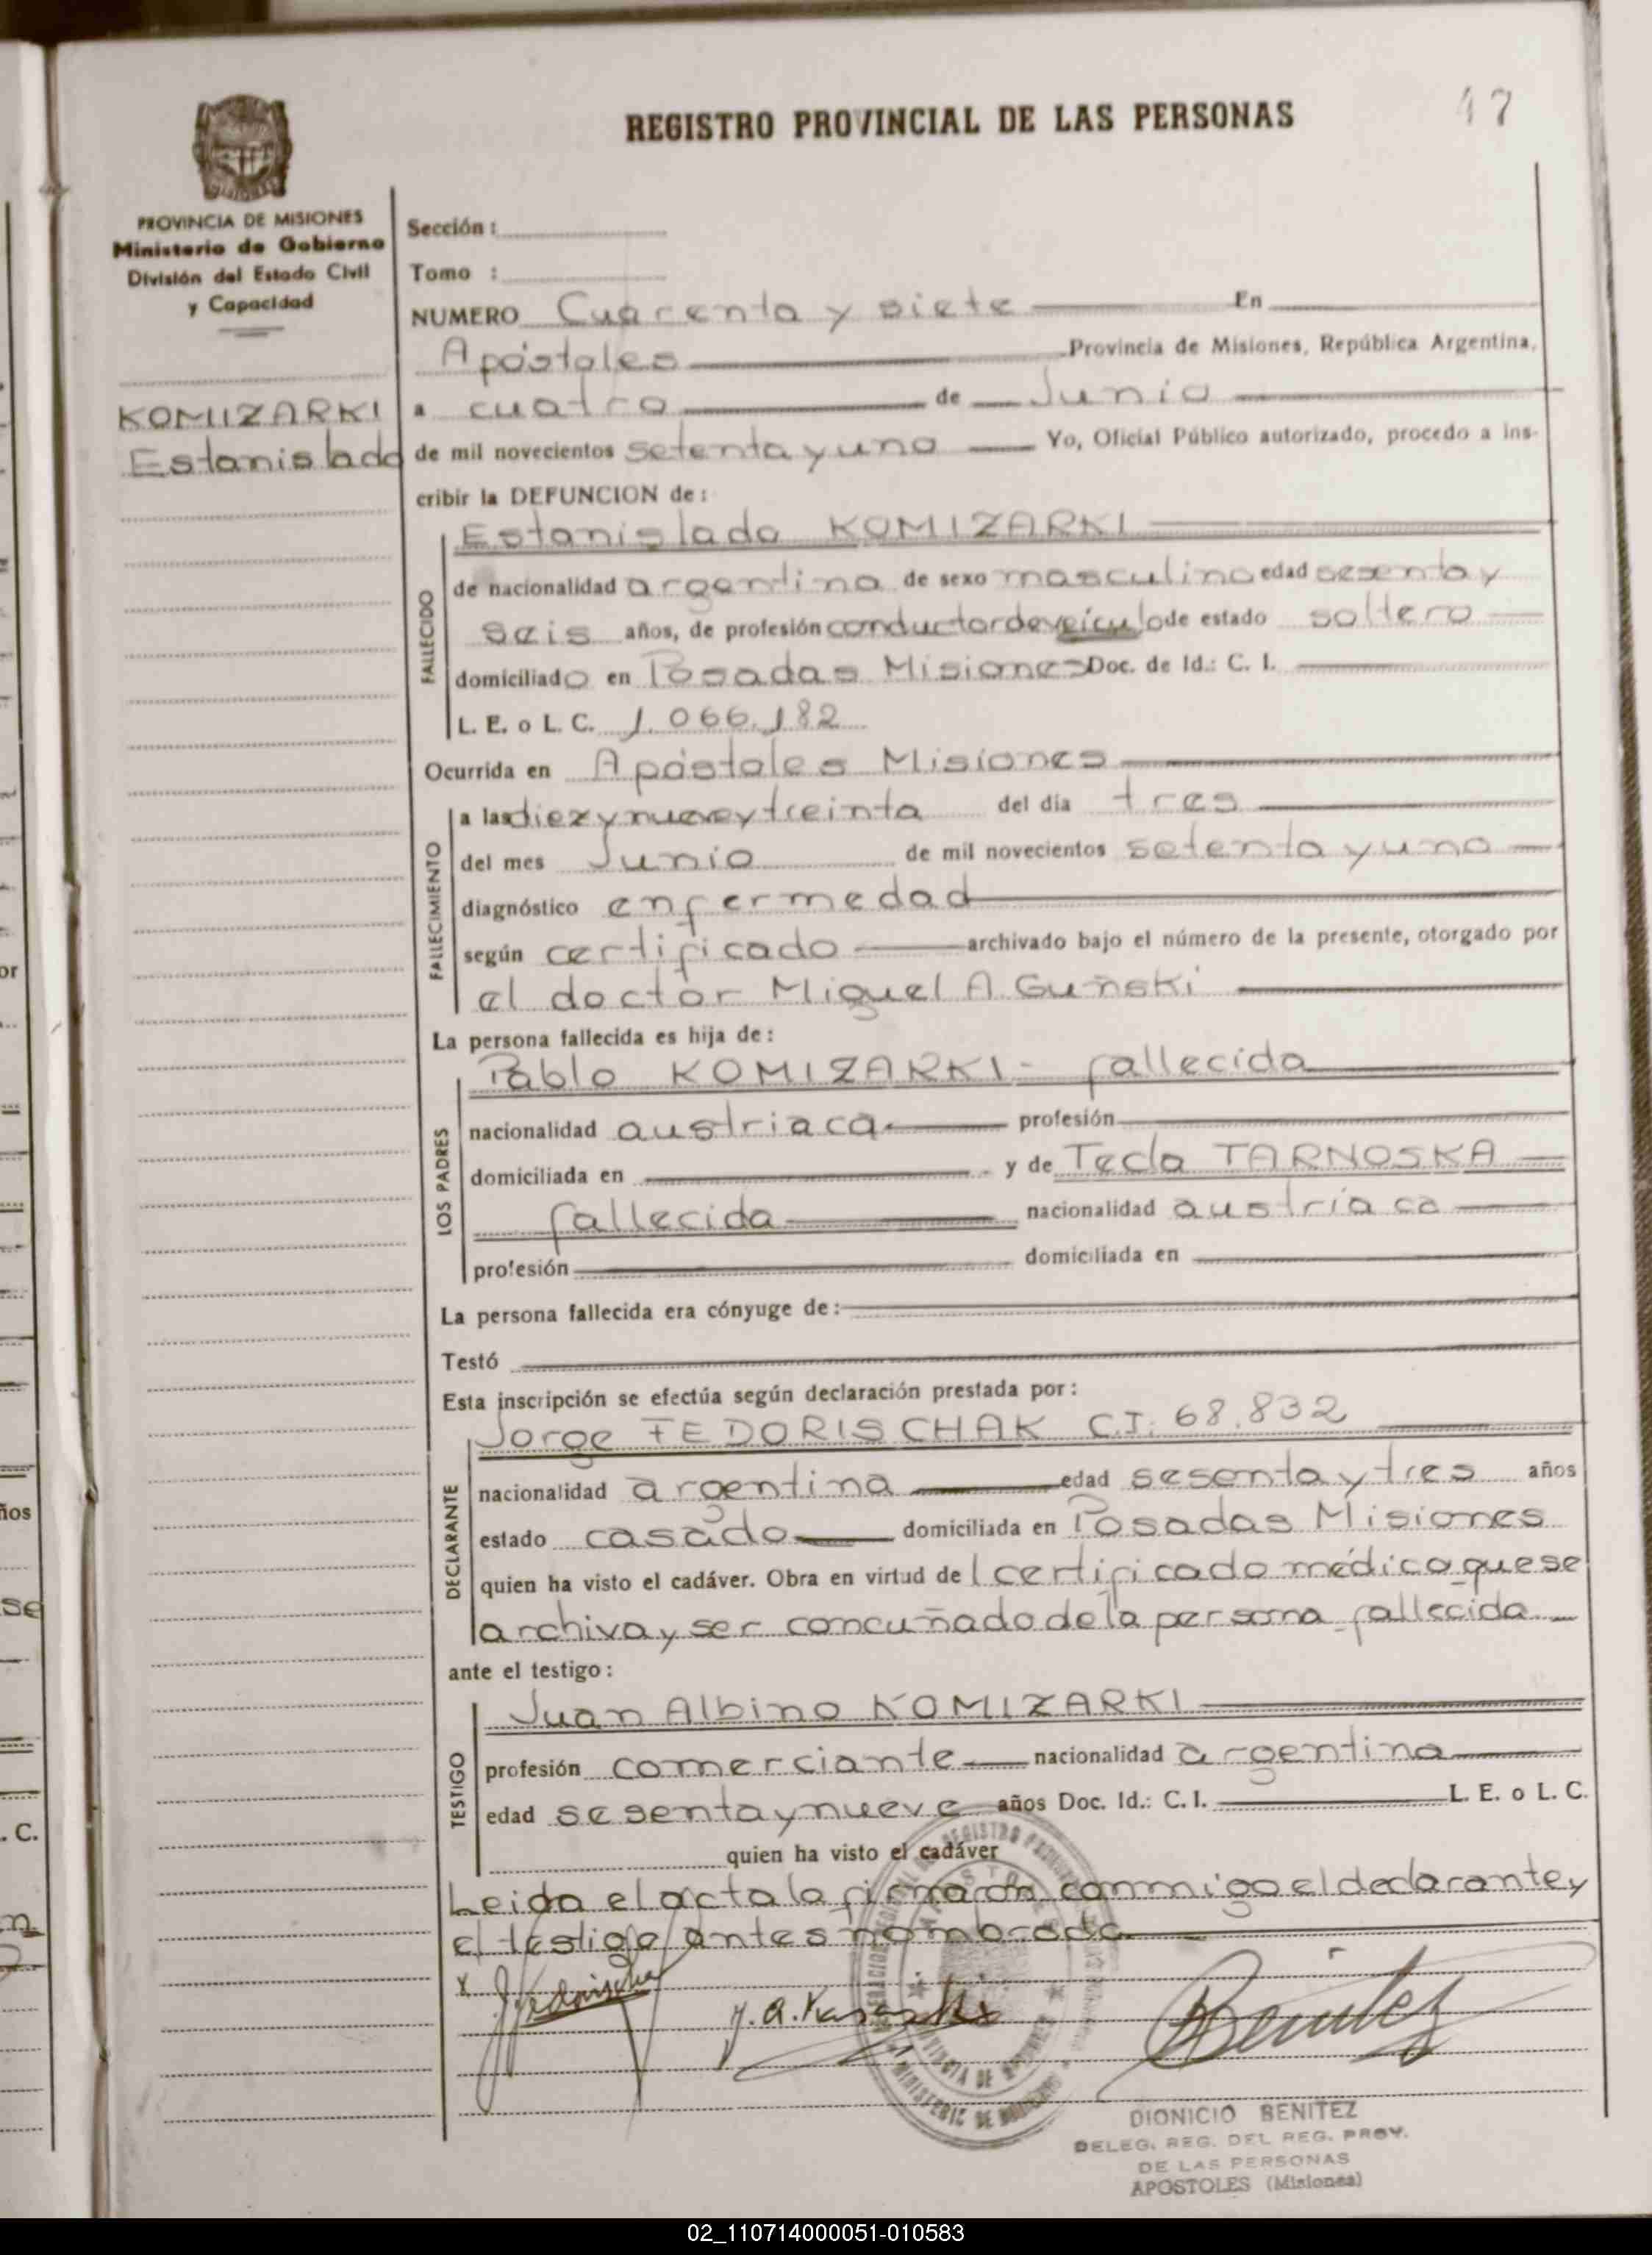 REGISTRO PROVINCIAL DE LAS PERSONAS
47
PROVINCIA DE MISIONES
Ministerio de Gobierno
División del Estado Civil
y Capacidad
KOMIZARKI
Estanislado
Sección :
Tomo :
NUMERO Cuarenta y siete En
Apóstoles Provincia de Misiones, República Argentina,
a cuatro de Junio
de mil novecientos setenta y uno Yo, Oficial Público autorizado, procedo a ins-
cribir la DEFUNCION de :
FALLECIDO
Estanislado KOMIZARKI
de nacionalidad argentina de sexo masculino edad sesenta y
seis años, de profesión conductor de veículo de estado soltero
domiciliado en Posadas Misiones Doc. de Id.: C. I.
L. E. o L. C. 1.066.182
Ocurrida en Apóstoles Misiones
FALLECIMIENTO
a las diez y nueve y treinta del día tres
del mes Junio de mil novecientos setenta y uno
diagnóstico enfermedad
según certificado archivado bajo el número de la presente, otorgado por
el doctor Miguel A. Guñski
La persona fallecida es hija de :
LOS PADRES
Pablo KOMIZARKI - fallecida
nacionalidad austriaca profesión
domiciliada en y de Tecla TARNOSKA
fallecida nacionalidad austríaca
profesión domiciliada en
La persona fallecida era cónyuge de :
Testó
Esta inscripción se efectúa según declaración prestada por :
DECLARANTE
Jorge FEDORISCHAK C.I. 68.832
nacionalidad argentina edad sesenta y tres años
estado casado domiciliada en Posadas Misiones
quien ha visto el cadáver. Obra en virtud del certificado médico que se
archiva y ser concuñado de la persona fallecida
ante el testigo :
TESTIGO
Juan Albino KOMIZARKI
profesión comerciante nacionalidad argentina
edad sesenta y nueve años Doc. Id.: C. I. L. E. o L. C.
quien ha visto el cadáver
Leida el acta la firmaron conmigo el declarante y
el testigo antes nombrado
x
Benitez
DIONICIO BENITEZ
DELEG. REG. DEL REG. PROV.
DE LAS PERSONAS
APOSTOLES (Misiones)
02_110714000051-010583